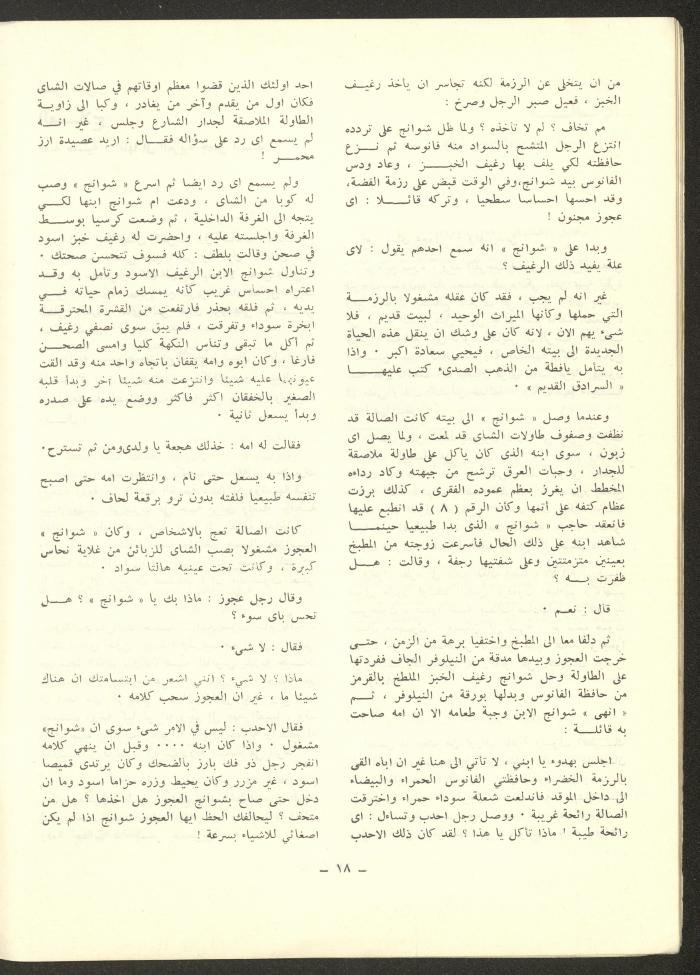 من ان يتخلى عن الرزمة لكنه تجاسر ان يأخذ رغيف
الخبز ، فعيل صبر الرجل وصرخ :
مم تخاف ؟ لم لا تأخذه ؟ ولما ظل شوانج على تردده
انتزع الرجل المتشح بالسواد منه فانوسه ثم نزع
حافظته لكي يلف بها رغيف الخبز ، وعاد ودس
الفانوس بيد شوانج،وفي الوقت قبض على رزمة الفضة،
وقد احسها احساسا سطحيا ، وتركه قائلا : اى
عجوز مجنون !
وبدا على « شوانج » انه سمع احدهم يقول : لاى
علة يفيد ذلك الرغيف ؟
غير انه لم يجب ، فقد كان عقله مشغولا بالرزمة
التي حملها وكأنها الميراث الوحيد ، لبيت قديم ، فلا
شىء يهم الان ، لانه كان على وشك ان ينقل هذه الحياة
الجديدة الى بيته الخاص ، فيحيي سعادة اكبر ٠ واذا
به يتأمل يافطة من الذهب الصدىء كتب عليها
« السرادق القديم » ٠
وعندما وصل « شوانج » الى بيته كانت الصالة قد
نظفت وصفوف طاولات الشاى قد لمعت ، ولما يصل اى
زبون ، سوى ابنه الذى كان ياكل على طاولة ملاصقة
للجدار ، وحبات العرق ترشح من جبهته وكاد رداءه
المخطط ان يغرز بعظم عموده الفقرى ، كذلك برزت
عظام كتفه على أتمها وكأن الرقم ( ٨ ) قد انطبع عليها
فانعقد حاجب « شوانج » الذى بدا طبيعيا حينما
شاهد ابنه على ذلك الحال فأسرعت زوجته من المطبخ
بعينين متزمتتين وعلى شفتيها رجفة ، وقالت : هل
ظفرت به ؟
قال : نعم ٠
ثم دلفا معا الى المطبخ واختفيا برهة من الزمن ، حتى
خرجت العجوز وبيدها مدقة من النيلوفر الجاف ففردتها
على الطاولة وحل شوانج رغيف الخبز الملطخ بالقرمز
من حافظة الفانوس وبدلها بورقة من النيلوفر ، ثم
« انهى » شوانج الابن وجبة طعامه الا ان امه صاحت
به قائلة :
اجلس بهدوء يا ابني ، لا تأتي الى هنا غير ان اباه القى
بالرزمة الخضراء وحافظتي الفانوس الحمراء والبيضاء
الى داخل الموقد فاندلعت شعلة سوداء حمراء واخترقت
الصالة رائحة غريبة ٠ ووصل رجل احدب وتساءل : اى
رائحة طيبة ! ماذا تأكل يا هذا ؟ لقد كان ذلك الاحدب
احد اولئك الذين قضوا معظم اوقاتهم في صالات الشاى
فكان اول من يقدم وآخر من يغادر ، وكبا الى زاوية
الطاولة الملاصقة لجدار الشارع وجلس ، غير انه
لم يسمع اى رد على سؤاله فقال : اريد عصيدة ارز
محمر !
ولم يسمع اى رد ايضا ثم اسرع « شوانج » وصب
له كوبا من الشاى ، ودعت ام شوانج ابنها لكي
يتجه الى الغرفة الداخلية ، ثم وضعت كرسيا بوسط
الغرفة واجلسته عليه ، واحضرت له رغيف خبز اسود
في صحن وقالت بلطف : كله فسوف تتحسن صحتك ٠
وتناول شوانج الابن الرغيف الاسود وتأمل به وقد
اعتراه احساس غريب كانه يمسك زمام حياته في
يديه ، ثم فلقه بحذر فارتفعت من القشرة المحترقة
ابخرة سوداء وتفرقت ، فلم يبق سوى نصفي رغيف ،
ثم أكل ما تبقى وتناس النكهة كليا وامسى الصحن
فارغا ، وكان ابوه وامه يقفان باتجاه واحد منه وقد القت
عيونهما عليه شيئا وانتزعت منه شيئا آخر وبدأ قلبه
الصغير بالخفقان اكثر فاكثر ووضع يده على صدره
وبدأ يسعل ثانية ٠
فقالت له امه : خذلك هجعة يا ولدى‌ومن ثم تسترح٠
واذا به يسعل حتى نام ، وانتظرت امه حتى اصبح
تنفسه طبيعيا فلفته بدون ترو برقعة لحاف ٠
كانت الصالة تعج بالاشخاص ، وكان « شوانج »
العجوز مشغولا بصب الشاى للزبائن من غلاية نحاس
كبيرة ، وكانت تحت عينيه هالتا سواد ٠
وقال رجل عجوز : ماذا بك يا « شوانج » ؟ هل
تحس باى سوء ؟
فقال : لا شىء ٠
ماذا ؟ لا شيء ؟ انني اشعر من ابتسامتك ان هناك
شيئا ما ، غير ان العجوز سحب كلامه ٠
فقال الاحدب : ليس في الامر شىء سوى ان «شوانج»
مشغول ٠ واذا كان ابنه ٠٠٠٠ وقبل ان ينهي كلامه
انفجر رجل ذو فك بارز بالضحك وكان يرتدى قميصا
اسود ، غير مزرر وكان يحيط وزره حزاما اسود وما ان
دخل حتى صاح بشوانج العجوز هل اخذها ؟ هل من
متحف ؟ ليحالفك الحظ ايها العجوز شوانج اذا لم يكن
اصغائي للاشياء بسرعة !
– ١٨ –